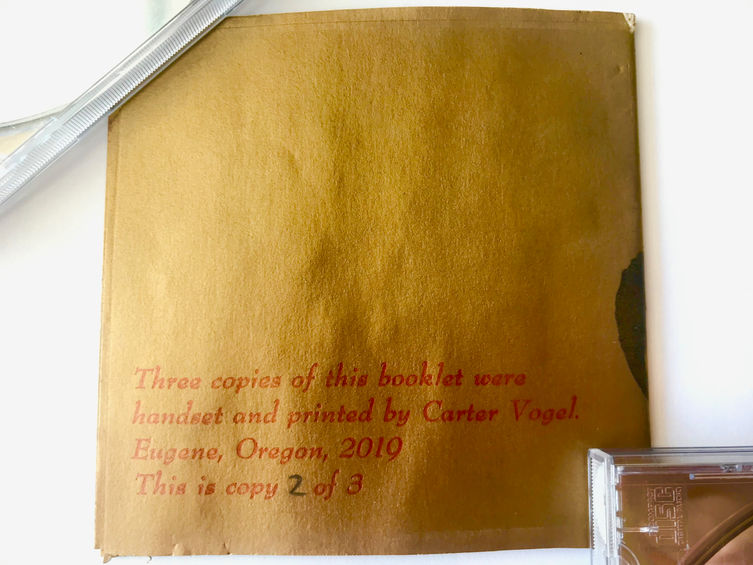 Three copies of this booklet were
handset and printed by Carter Vogel.
Eugene, Oregon, 2019
This is copy 2 of 3
COMPACT
disc
DIGITAL AUDIO